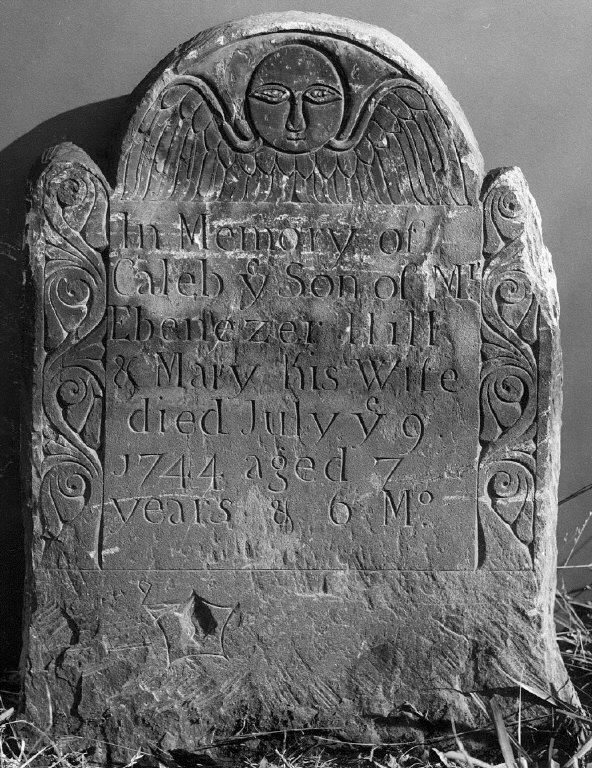 In Memory of
Caleb yͤ Son of Mͬ
Ebenezer Hill
& Mary his Wife
died July yͤ 9
1744 aged 7
years & 6 Mᵒ.